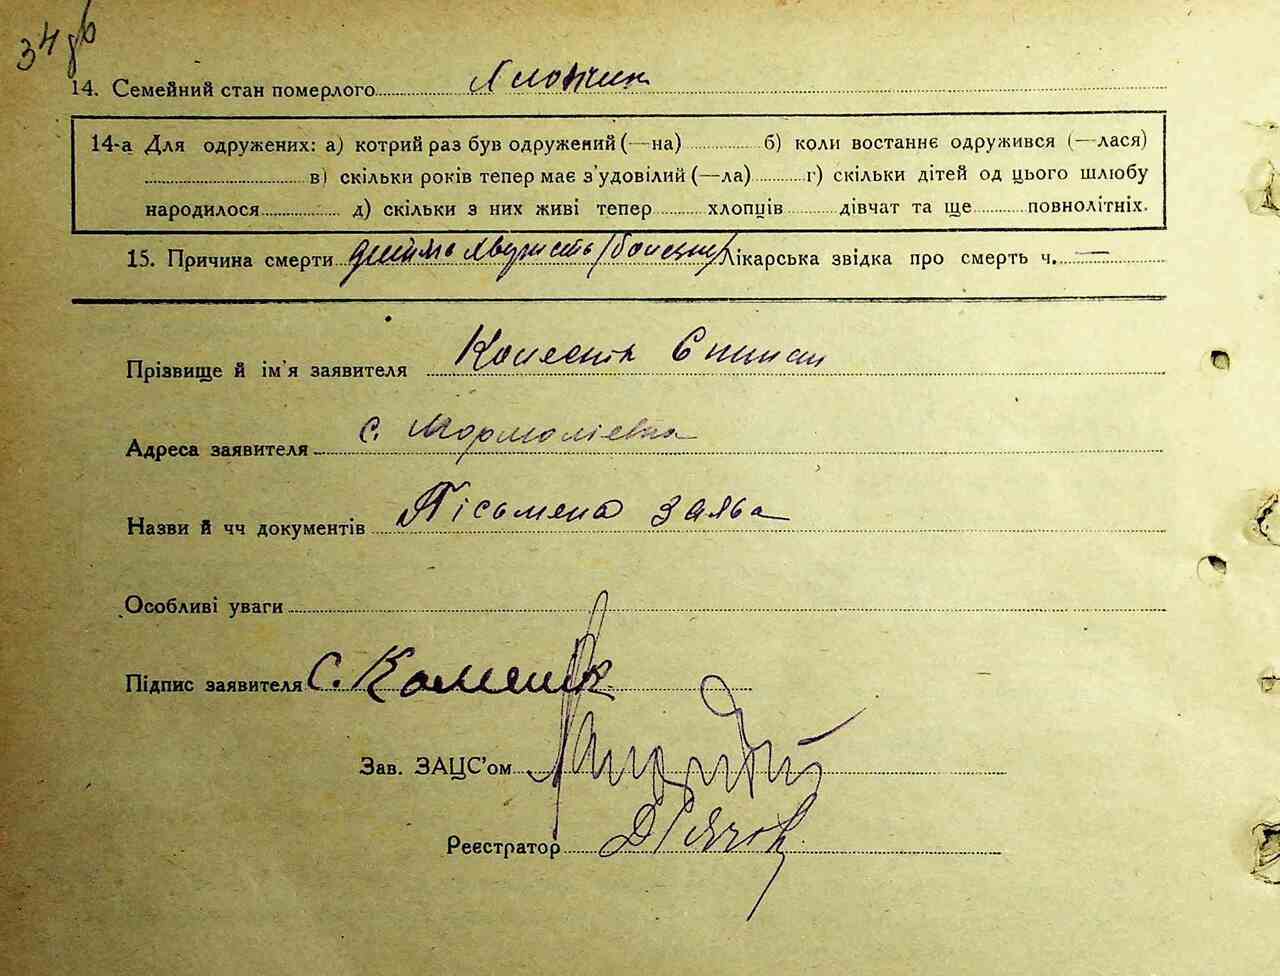 34 зв
14. Семейний стан померлого Хлопчик
14-а Для одружених: а) котрий раз був одружений (—на) б) коли востаннє одружився (—лася)
в) скільки років тепер має з'удовілий (—ла) г) скільки дітей од цього шлюбу
народилося д) скільки з них живі тепер хлопців дівчат та ще повнолітніх.
15. Причина смерти Лікарська звідка про смерть ч. —
Прізвище й ім'я заявителя
Адреса заявителя с. Мормоліевка
Назви й чч документів Пісьмена заява
Особливі уваги
Підпис заявителя С.
Зав. ЗАЦС'ом
Реєстратор